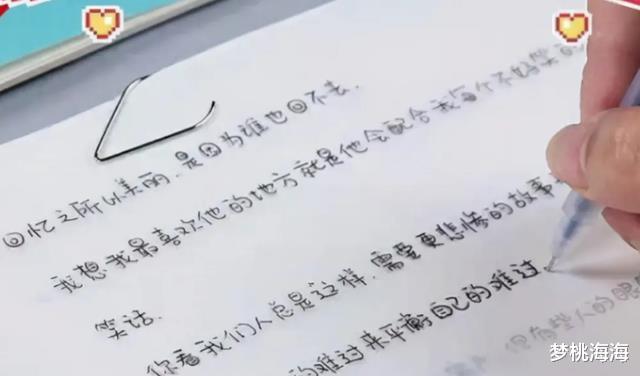 回忆之所以美丽，是因为谁也回不去。
我想我最喜欢他的地方就是他会配合我每个不好笑的
笑话。
你看我们人总是这样，需要更悲惨的故事
的难过来平衡自己的难过。
但有些人的眼
梦桃海海